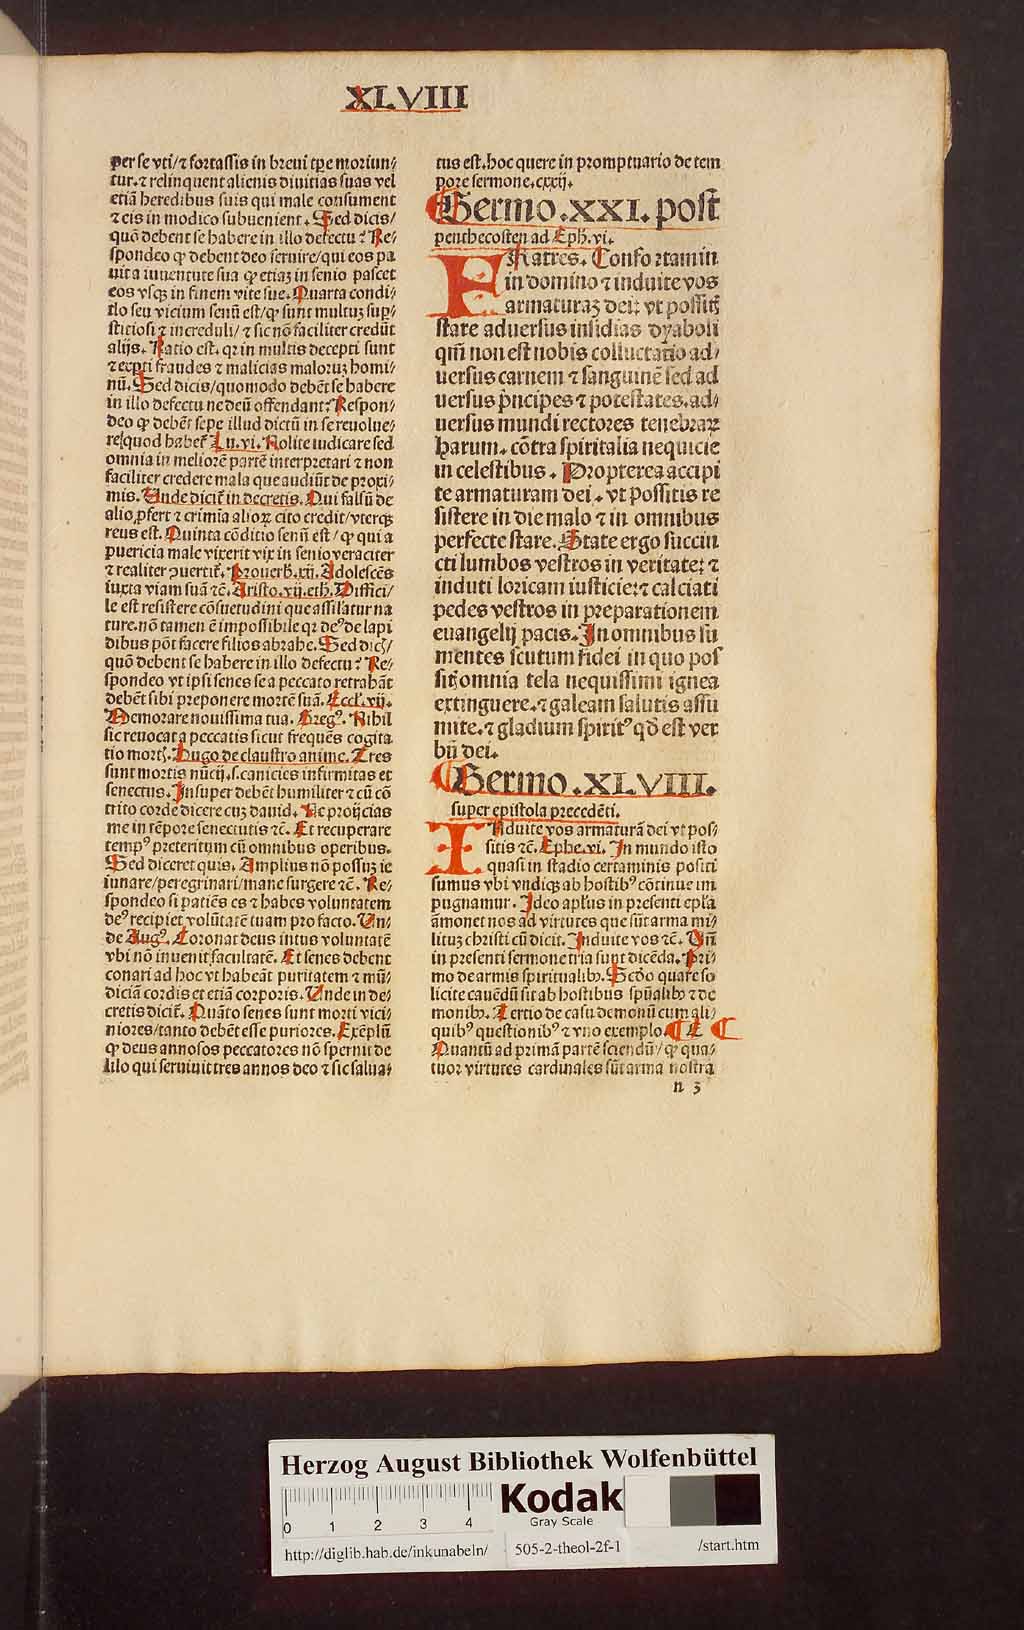 XLVIII
per se vti/ ⁊ fortassis in breui tp̄e moriun⸗
tur. ⁊ relinquent alienis diuitias suas vel
etiā heredibus suis qui male consument
⁊ eis in modico subuenient. Sed dicis/
quō debent se habere in illo defectu? Re⸗
spondeo ꝙ debent deo seruire/ qui eos pa
uit a iuuentute sua ꝙ etiaꝫ in senio pascet
eos vsqꝫ in finem vite sue. Quarta condi⸗
tio seu vicium senū est/ ꝙ sunt multuꝫ suꝑ⸗
stitiosi ⁊ increduli/ ⁊ sic nō faciliter credūt
alijs. Ratio est. qꝛ in multis decepti sunt
⁊ exꝑti fraudes ⁊ malicias maloruꝫ homi⸗
nū. Sed dicis/ quomodo debēt se habere
in illo defectu ne deū offendant? Respon⸗
deo ꝙ debēt sepe illud dictū in se reuolue⸗
re/ quod habet᷑ Lu. vi. Nolite iudicare sed
omnia in meliorē partē interpretari ⁊ non
faciliter credere mala que audiūt de proxi⸗
mis. Unde dicit᷑ in decretis. Qui falsū de
alio ꝓfert ⁊ crimīa alioꝝ cito credit/ vterqꝫ
reus est. Quinta cōditio senū est/ ꝙ qui a
puericia male vixerit vix in senio veraciter
⁊ realiter ꝯuertit᷑. Prouerb. xij. Adolescēs
iuxta viam suā ⁊c̄. Aristo. vij. eth. Diffici/
le est resistere cōsuetudini que assilatur na
ture. nō tamen ē impossibile qꝛ deꝰ de lapi
dibus pōt facere filios abrahe. Sed dicꝭ/
quō debent se habere in illo defectu? Re⸗
spondeo vt ipsi senes se a peccato retrabāt
debēt sibi preponere mortē suā. Eccl̄. vij.
Memorare nouissima tua. Gregꝰ. Nihil
sic reuocat a peccatis sicut frequēs cogita
tio mortꝭ. Hugo de claustro anime. Tres
sunt mortis nūcij. s. canicies infirmitas et
senectus. Insuper debēt humiliter ⁊ cū cō
trito corde dicere cuꝫ dauid. Ne proijcias
me in tēpore senectutis ⁊c̄. Et recuperare
tempꝰ preteritum cū omnibus operibus.
Sed diceret quis. Amplius nō possuꝫ ie
iunare/ peregrinari/ mane surgere ⁊c̄. Re⸗
spondeo si patiēs es ⁊ habes voluntatem
deꝰ recipiet volūtatē tuam pro facto. Un⸗
de Augꝰ. Coronat deus intus voluntatē
vbi nō inuenit facultatē. Et senes debent
conari ad hoc vt habeāt puritatem ⁊ mū⸗
diciā cordis et etiā corporis. Unde in de⸗
cretis dicit᷑. Quāto senes sunt morti vici⸗
niores/ tanto debēt esse puriores. Exēplū
ꝙ deus annosos peccatores nō spernit de
illo qui seruiuit tres annos deo ⁊ sic salua⸗
tus est. hoc quere in promptuario de tem
pore sermone. cxxij.
Sermo .XXI. post
penthecosten ad Eph. vi.
FRatres. Confortamin
in domino ⁊ induite vos
armaturaꝫ dei: vt possitꝭ
stare aduersus insidias dyaboli
qm̄ non est nobis colluctatio ad⸗
uersus carnem ⁊ sanguinē sed ad
uersus pͥncipes ⁊ potestates. ad⸗
uersus mundi rectores tenebraꝝ
harum. cōtra spiritalia nequicie
in celestibus. Propterea accipi
te armaturam dei. vt possitis re
sistere in die malo ⁊ in omnibus
perfecte stare. State ergo succin
cti lumbos vestros in veritate: ⁊
induti loricam iusticie: ⁊ calciati
pedes vestros in preparationem
euangelij pacis. In omnibus su
mentes scutum fidei in quo pos
sitꝭ omnia tela nequissimi ignea
extinguere. ⁊ galeam salutis assu
mite. ⁊ gladium spiritꝰ qd̄ est ver
bū dei.
Sermo .XLVIII.
super epistola precedēti.
INduite vos armaturā dei vt pos⸗
sitis ⁊c̄. Ephe. vi. In mundo isto
quasi in stadio certaminis positi
sumus vbi vndiqꝫ ab hostibꝰ cōtinue im
pugnamur. Ideo apl̄us in presenti epl̄a
āmonet nos ad virtutes que sūt arma mi⸗
lituꝫ christi cū dicit. Induite vos ⁊c̄. Un̄
in presenti sermone tria sunt dicēda. Pri⸗
mo de armis spiritualibꝰ. Scd̄o quare so
licite cauēdū sit ab hostibus sp̄ualibꝰ ⁊ de
monibꝰ. Tertio de casu demonū cum ali⸗
quibꝰ questionibꝰ ⁊ vno exemplo.
Quantū ad primā partē sciendū/ ꝙ qua⸗
tuor virtutes cardinales sūt arma nostra
n 3
Herzog August Bibliothek Wolfenbüttel
0 1 2 3 4
Kodak
Gray Scale
http://diglib.hab.de/inkunabeln/ 505-2-theol-2f-1 /start.htm